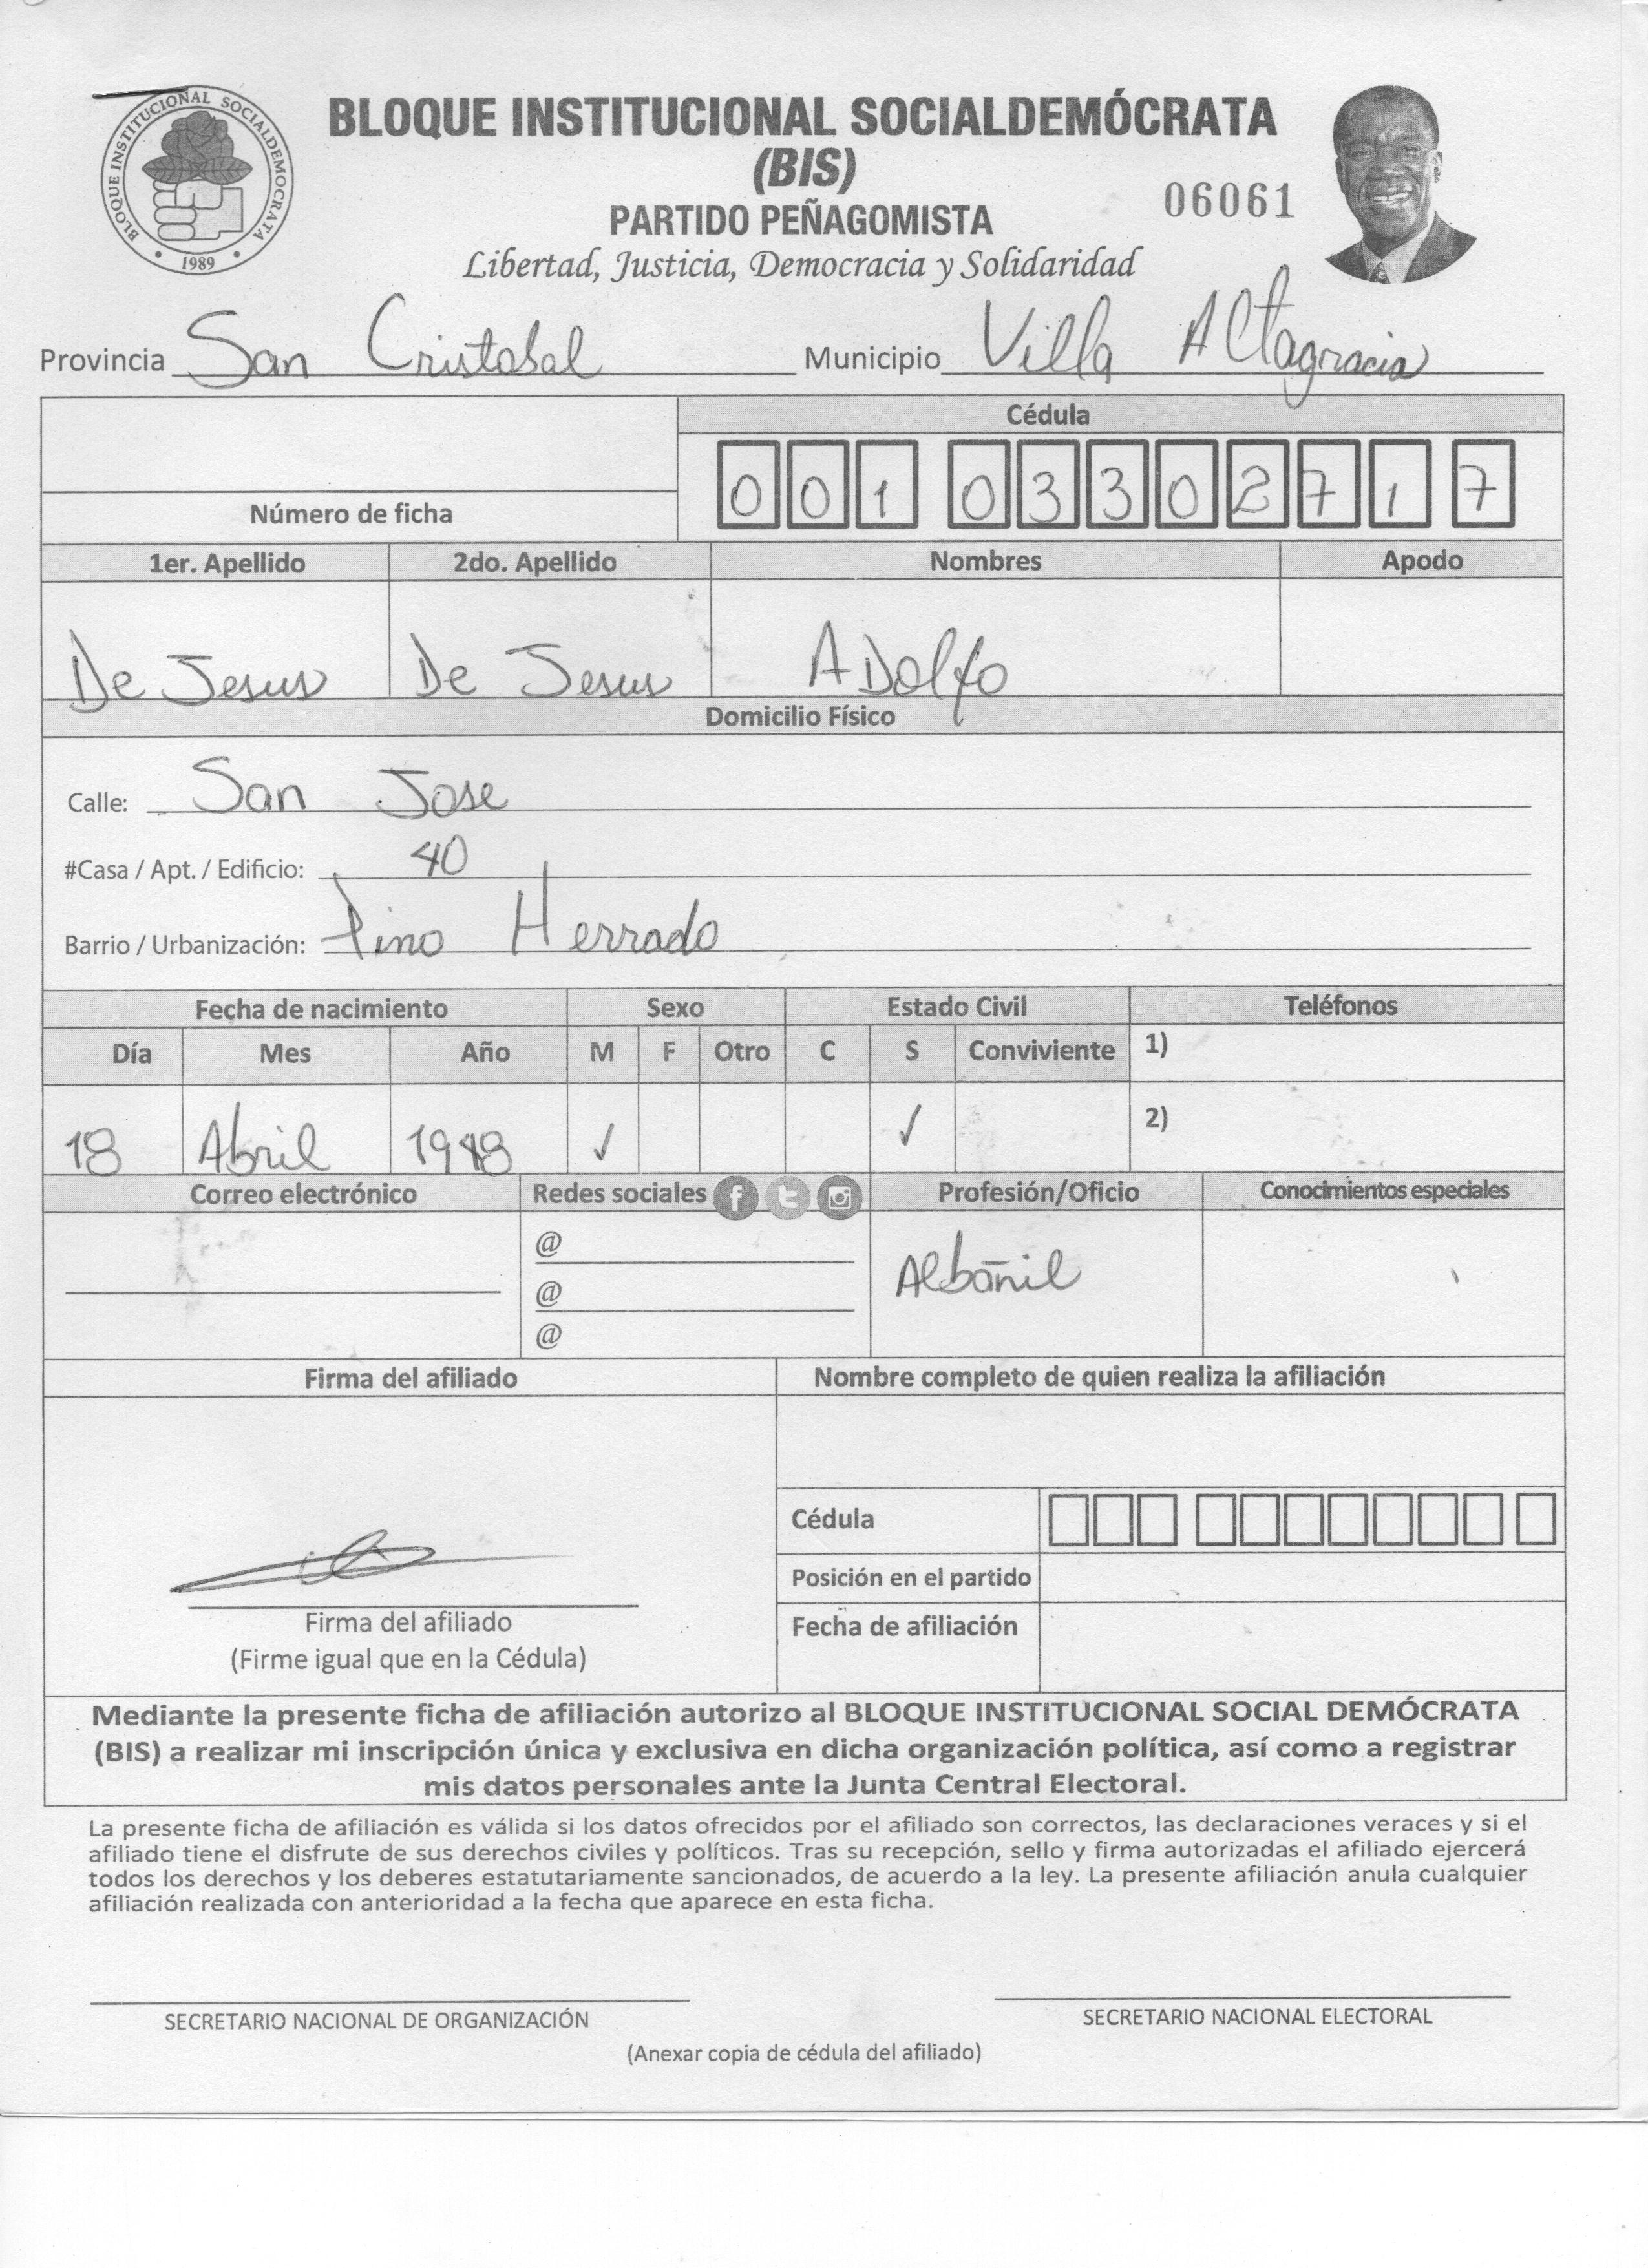 BLOQUE INSTITUCIONAL SOCIALDEMOCRATA
1989
BLOQUE INSTITUCIONAL SOCIALDEMÓCRATA
(BIS)
PARTIDO PEÑAGOMISTA
06061
Libertad, Justicia, Democracia y Solidaridad
Provincia San Cristobal Municipio Villa Altagracia
Cédula
0 0 1 0 3 3 0 2 7 1 7
Número de ficha
1er. Apellido 2do. Apellido Nombres Apodo
De Jesus De Jesus ADolfo
Domicilio Físico
Calle: San Jose
#Casa / Apt. / Edificio: 40
Barrio / Urbanización: Pino Herrado
Fecha de nacimiento Sexo Estado Civil Teléfonos
Día Mes Año M F Otro C S Conviviente 1)
18 Abril ✓ ✓ 2)
Correo electrónico Redes sociales f t Profesión/Oficio Conocimientos especiales
@
@
@
Albañil
Firma del afiliado Nombre completo de quien realiza la afiliación
Cédula
Posición en el partido
Fecha de afiliación
Firma del afiliado
(Firme igual que en la Cédula)
Mediante la presente ficha de afiliación autorizo al BLOQUE INSTITUCIONAL SOCIAL DEMÓCRATA
(BIS) a realizar mi inscripción única y exclusiva en dicha organización política, así como a registrar
mis datos personales ante la Junta Central Electoral.
La presente ficha de afiliación es válida si los datos ofrecidos por el afiliado son correctos, las declaraciones veraces y si el
afiliado tiene el disfrute de sus derechos civiles y políticos. Tras su recepción, sello y firma autorizadas el afiliado ejercerá
todos los derechos y los deberes estatutariamente sancionados, de acuerdo a la ley. La presente afiliación anula cualquier
afiliación realizada con anterioridad a la fecha que aparece en esta ficha.
SECRETARIO NACIONAL DE ORGANIZACIÓN SECRETARIO NACIONAL ELECTORAL
(Anexar copia de cédula del afiliado)